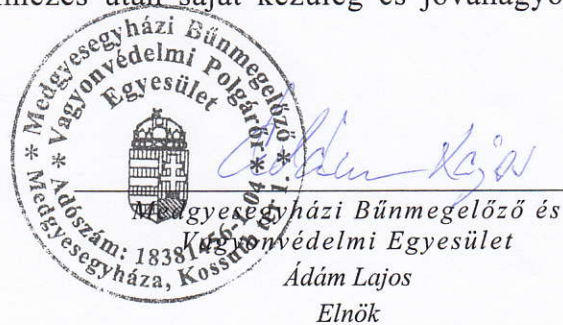 után saját kezűleg és jóváhagyó
* Medgyesegyházi Bűnmegelőző *
* Vagyonvédelmi Polgárőr *
Egyesület
Medgyesegyháza, Kossuth tér 1.
Ádám Lajos
Medgyesegyházi Bűnmegelőző és
Vagyonvédelmi Egyesület
Ádám Lajos
Elnök